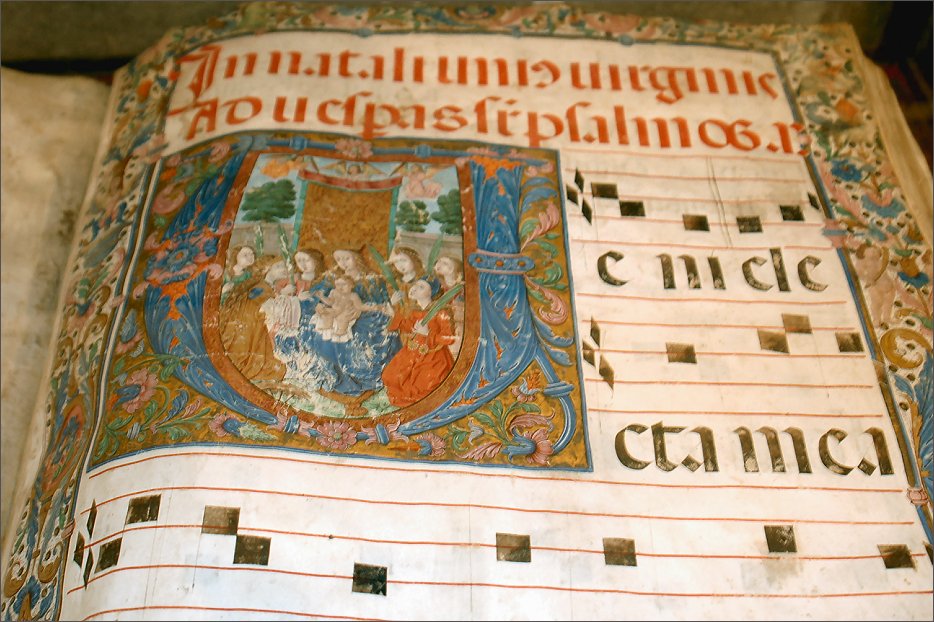 In natali uniꝯ uirginis
Ad uespas psalmi
Ueni ele
cta mea